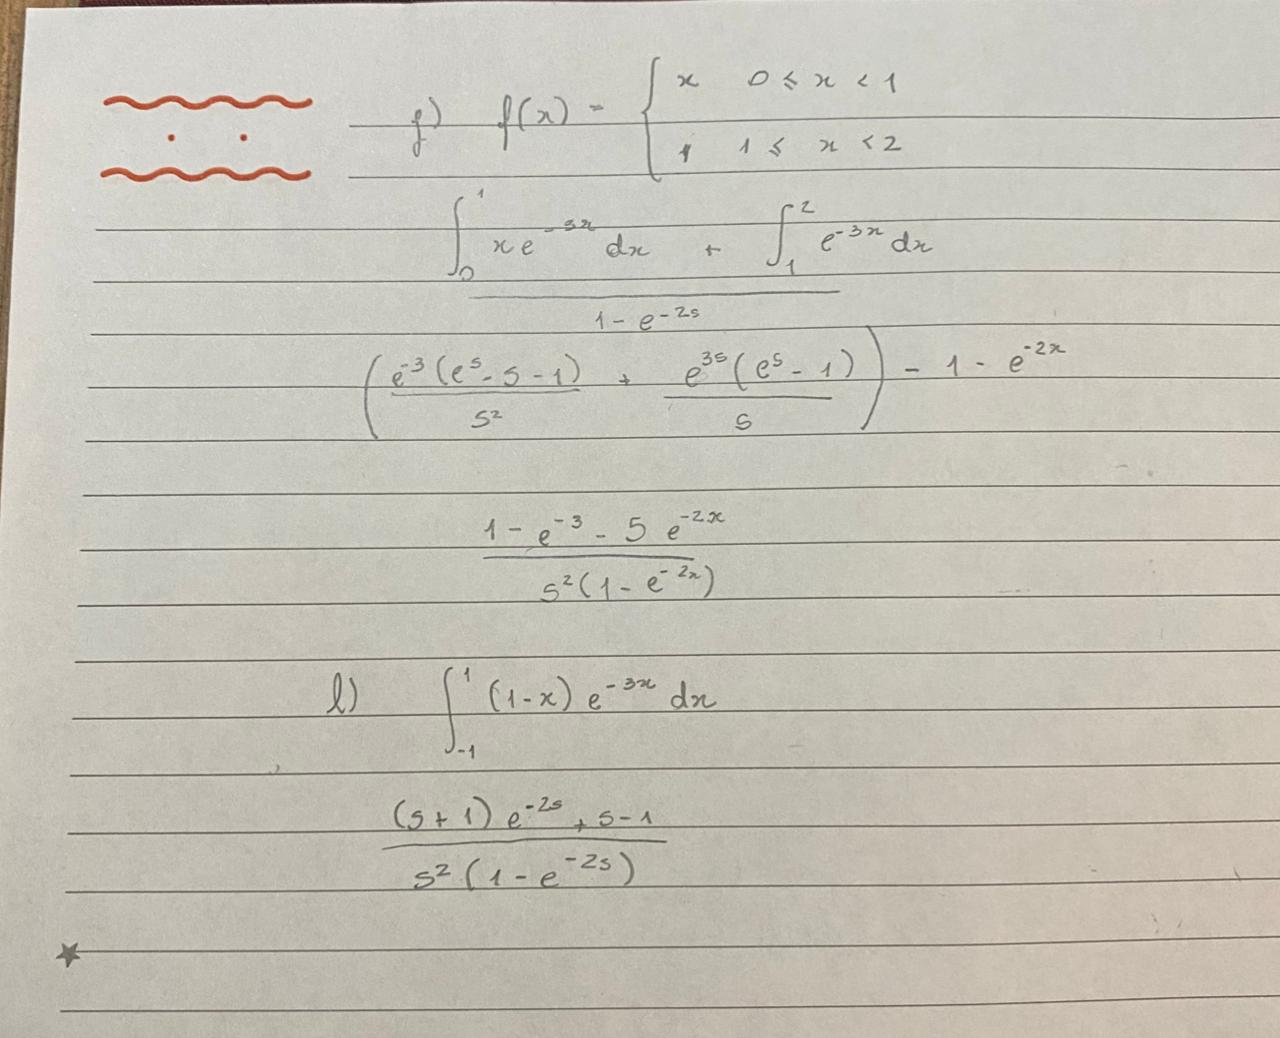 f) f(x) = { x 0 ≤ x < 1
1 1 ≤ x < 2
∫₀¹ x e^{-3x} dx + ∫₁² e^{-3x} dx
1 - e^{-2s}
( e^{-3} (e^s - s - 1) / s² + e^{3s} (e^s - 1) / s ) - 1 - e^{-2x}
1 - e^{-3} - 5 e^{-2x}
s² (1 - e^{-2x})
l) ∫₋₁¹ (1-x) e^{-3x} dx
(s + 1) e^{-2s} + s - 1
s² (1 - e^{-2s})